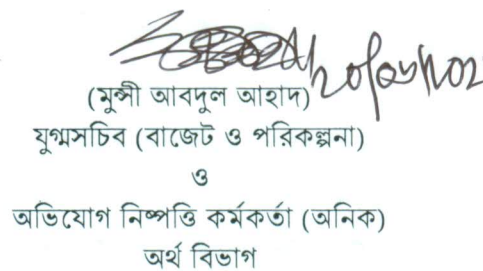 (মুন্সী আবদুল আহাদ)
যুগ্মসচিব (বাজেট ও পরিকল্পনা)
ও
অভিযোগ নিষ্পত্তি কর্মকর্তা (অনিক)
অর্থ বিভাগ